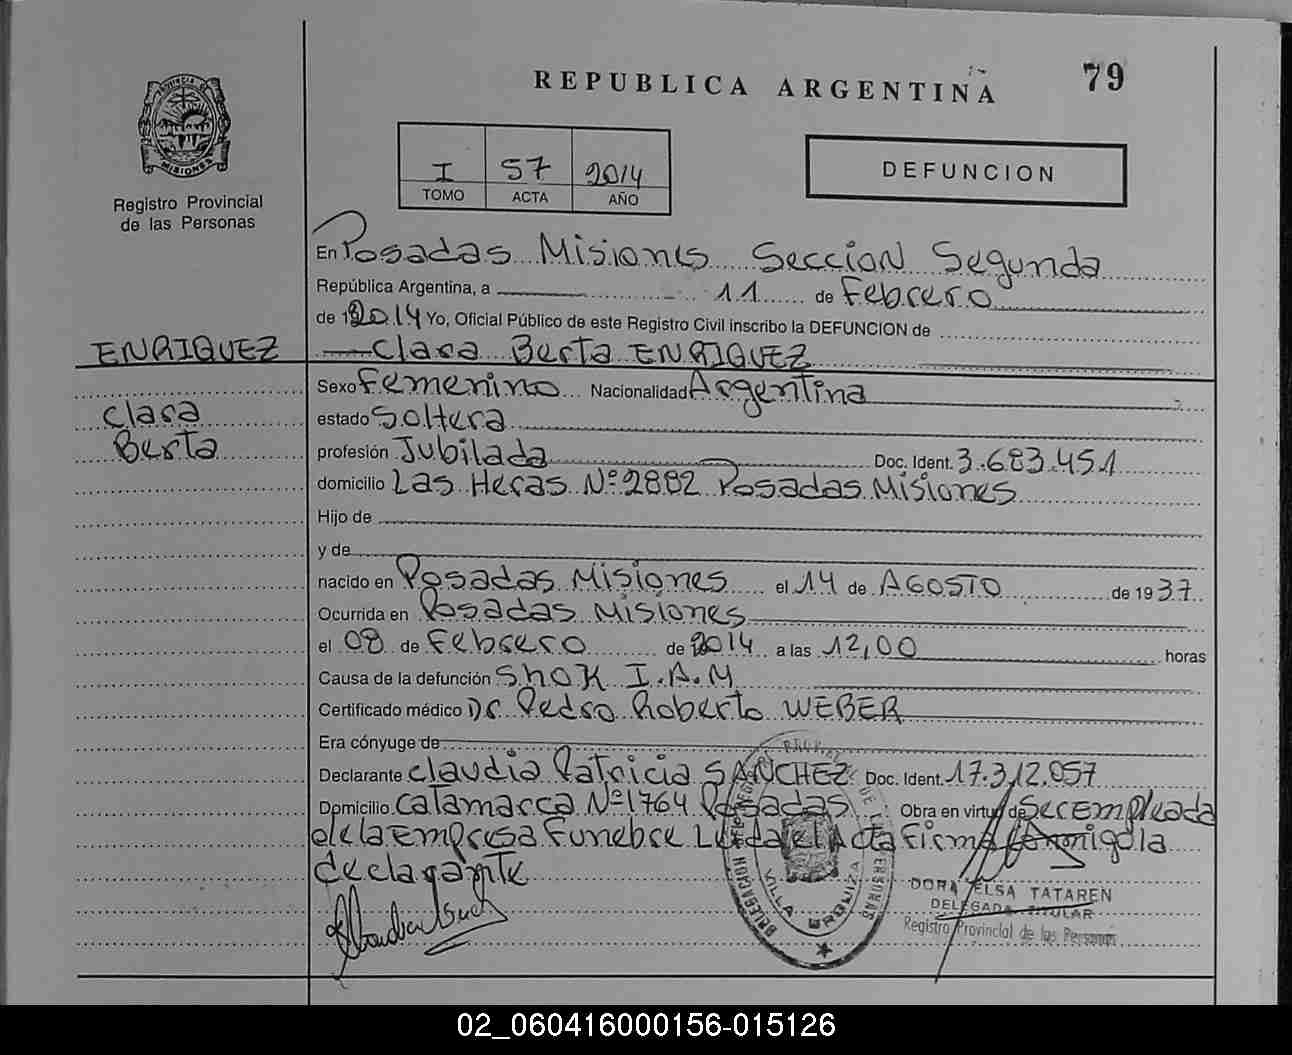 REPUBLICA ARGENTINA
79
PROVINCIA DE MISIONES
Registro Provincial
de las Personas
I 57 2014
TOMO ACTA AÑO
DEFUNCION
En Posadas Misiones Seccion Segunda
República Argentina, a 11 de Febrero
de 192014 Yo, Oficial Público de este Registro Civil inscribo la DEFUNCION de
ENRIQUEZ
Clara Berta ENRIQUEZ
Clara
Berta
Sexo Femenino Nacionalidad Argentina
estado Soltera
profesión Jubilada Doc. Ident. 3.683.451
domicilio Las Heras Nº 2882 Posadas Misiones
Hijo de
y de
nacido en Posadas Misiones el 14 de AGOSTO de 1937
Ocurrida en Posadas Misiones
el 08 de Febrero de 2014 a las 12,00 horas
Causa de la defunción Shok I.A.M
Certificado médico Dr Pedro Roberto WEBER
Era cónyuge de
Declarante Claudia Patricia SANCHEZ Doc. Ident. 17.312.057
Domicilio Catamarca Nº 1764 Posadas Obra en virtud de Ser Empleada
de la Empresa Funebre Leida el Acta Firma Conmigo la
declarante
DELEGACION
DE LAS PERSONAS
VILLA URQUIZA
DORA ELSA TATAREN
DELEGADA TITULAR
Registro Provincial de las Personas
02_060416000156-015126